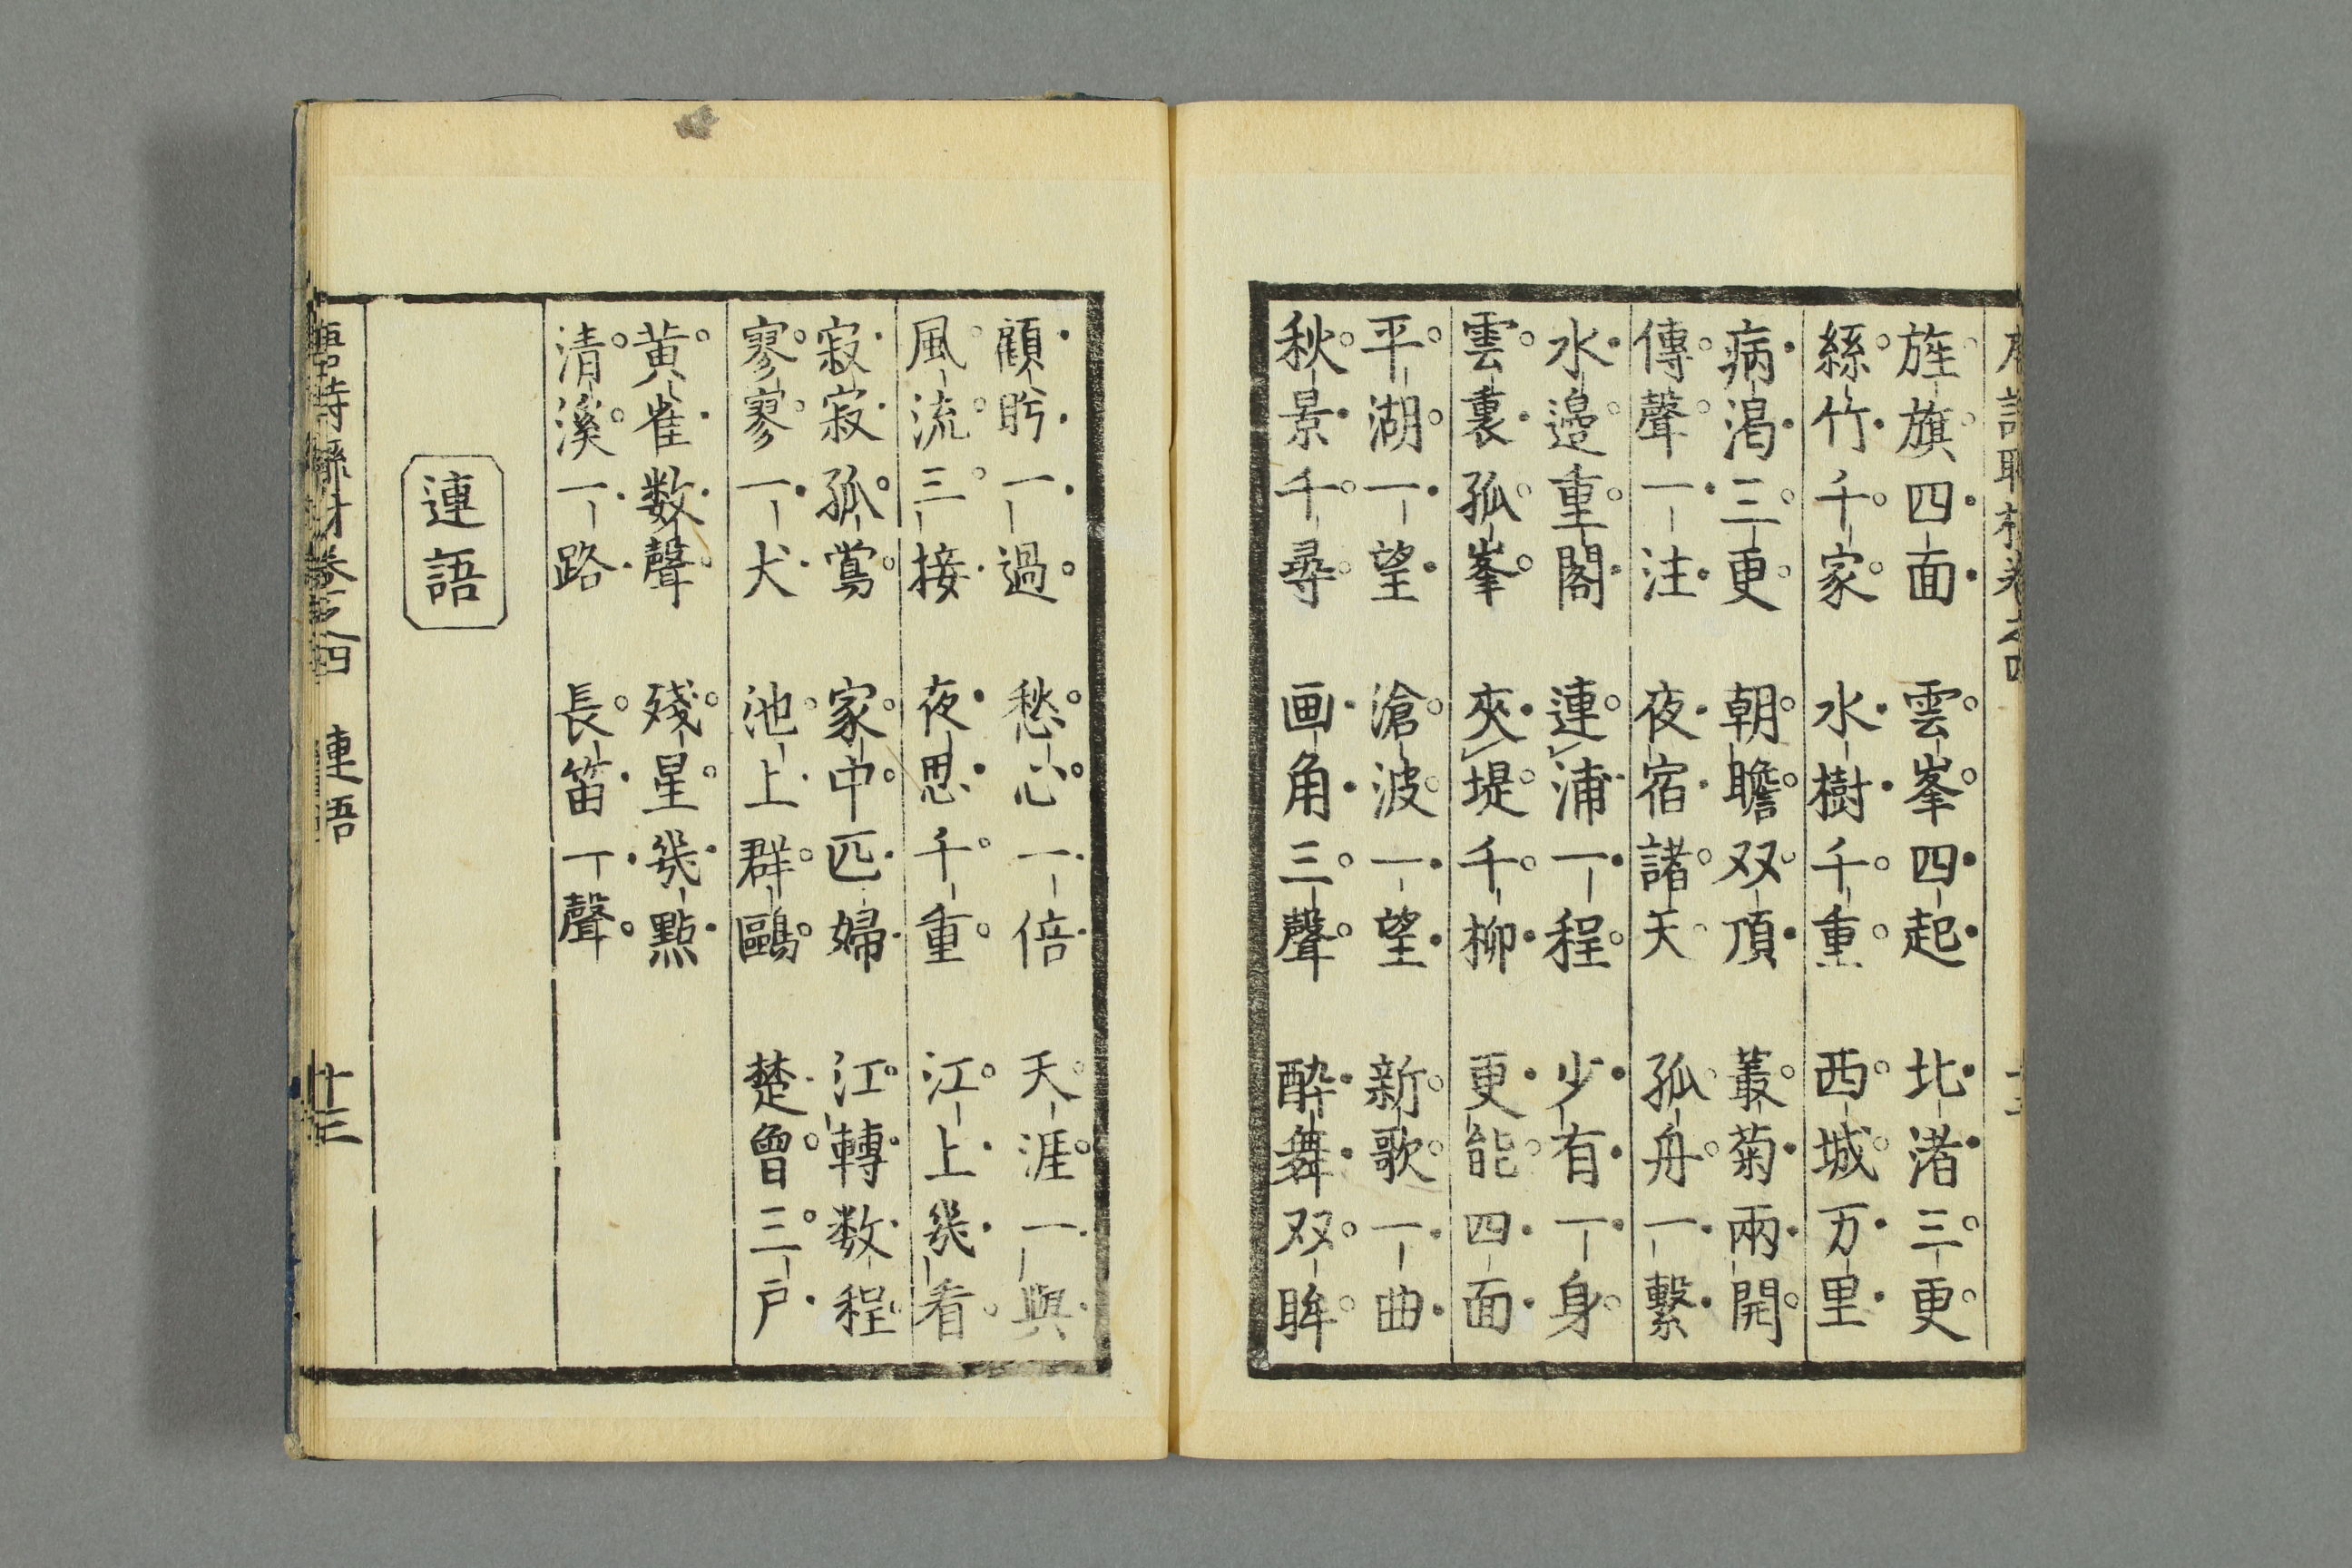 旌旗四面　雲峯四起　北渚三更
絲竹千家　水樹千重　西城万里
病渇三更　朝瞻双頂　叢菊兩開
傳聲一注　夜宿諸天　孤舟一繫
水邉重閣　連浦一程　少有一身
雲裏孤峯　夾堤千柳　更能四面
平湖一望　滄波一望　新歌一曲
秋景千尋　画角三聲　酔舞双眸
顧眄一過　愁心一倍　天涯一與
風流三接　夜思千重　江上幾看
寂寂孤鶯　家中匹婦　江轉数程
寥寥一犬　池上群鷗　楚曾三戸
黄雀数聲　殘星幾點
清溪一路　長笛一聲
連語
唐詩聯材卷之四　連語　十三